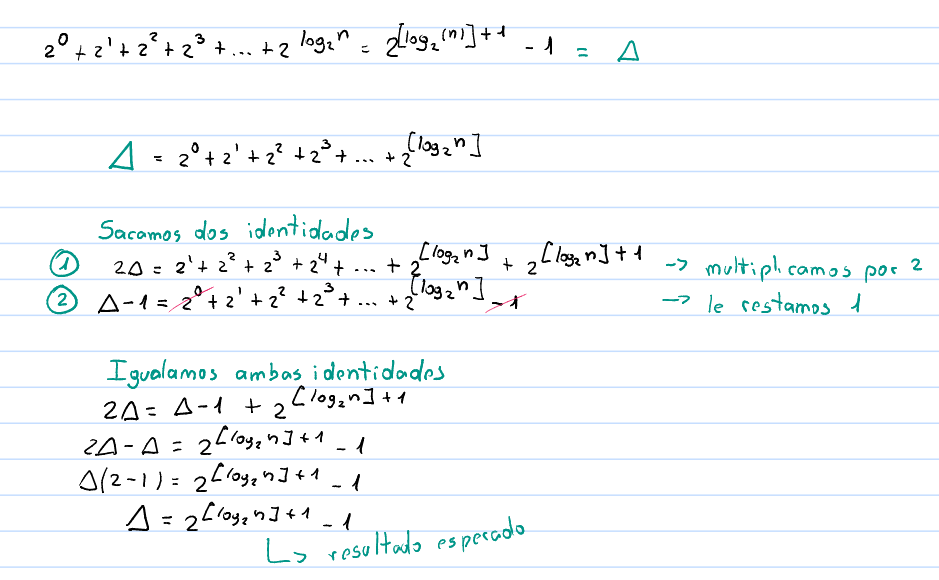 2⁰ + 2¹ + 2² + 2³ + ... + 2^(log₂n) = 2^([log₂(n)]+1) - 1 = Δ
Δ = 2⁰ + 2¹ + 2² + 2³ + ... + 2^([log₂n])
Sacamos dos identidades
① 2Δ = 2¹ + 2² + 2³ + 2⁴ + ... + 2^([log₂n]) + 2^([log₂n]+1) -> multiplicamos por 2
② Δ - 1 = 2⁰ + 2¹ + 2² + 2³ + ... + 2^([log₂n]) - 1 -> le restamos 1
Igualamos ambas identidades
2Δ = Δ - 1 + 2^([log₂n]+1)
2Δ - Δ = 2^([log₂n]+1) - 1
Δ(2-1) = 2^([log₂n]+1) - 1
Δ = 2^([log₂n]+1) - 1
↳ resultado esperado